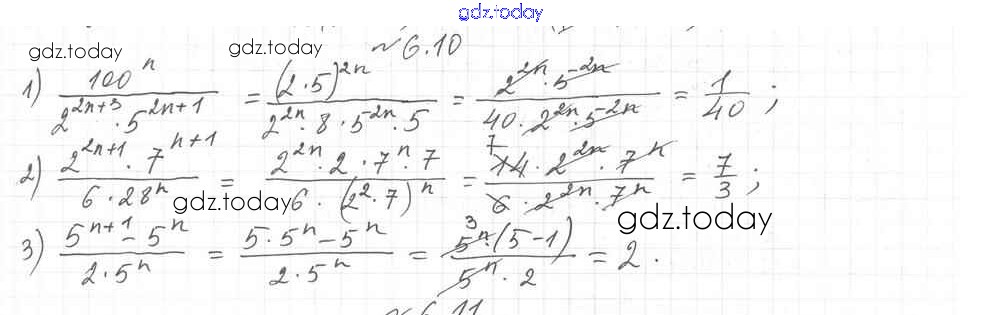 gdz.today
№ 6.10
gdz.today gdz.today
1) 100^n / (2^(2n+3) · 5^(2n+1)) = (2·5)^(2n) / (2^(2n) · 8 · 5^(2n) · 5) = (2^(2n) · 5^(2n)) / (40 · 2^(2n) · 5^(2n)) = 1/40 ;
2) (2^(2n+1) · 7^(n+1)) / (6 · 28^n) = (2^(2n) · 2 · 7^n · 7) / (6 · (2^2 · 7)^n) = (14 · 2^(2n) · 7^n) / (6 · 2^(2n) · 7^n) = 7/3 ;
7
3
gdz.today gdz.today
3) (5^(n+1) - 5^n) / (2 · 5^n) = (5 · 5^n - 5^n) / (2 · 5^n) = (5^n · (5-1)) / (5^n · 2) = 2 .
№ 6.11